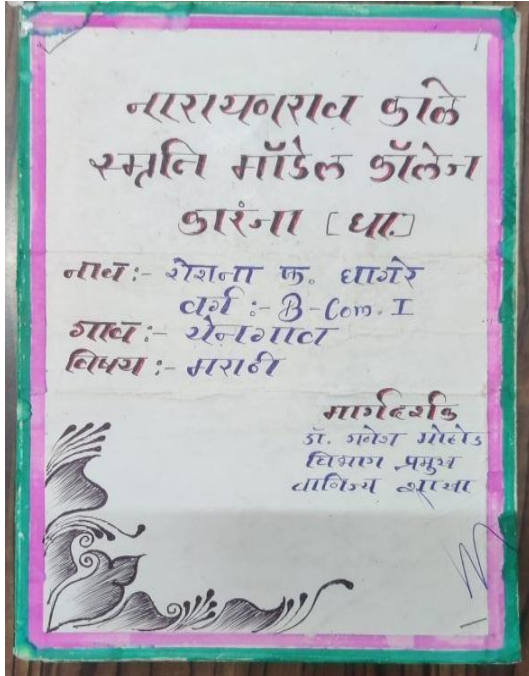 नारायणराव काळे
स्मृति मॉडेल कॉलेज
कारंजा [घा.]
नाव :- रोशना फ. धागरे
वर्ग :- B-Com. I
गाव :- येनगाव
विषय :- मराठी
मार्गदर्शक
डॉ. गनेश
विभाग प्रमुख
वानिज्य शाखा